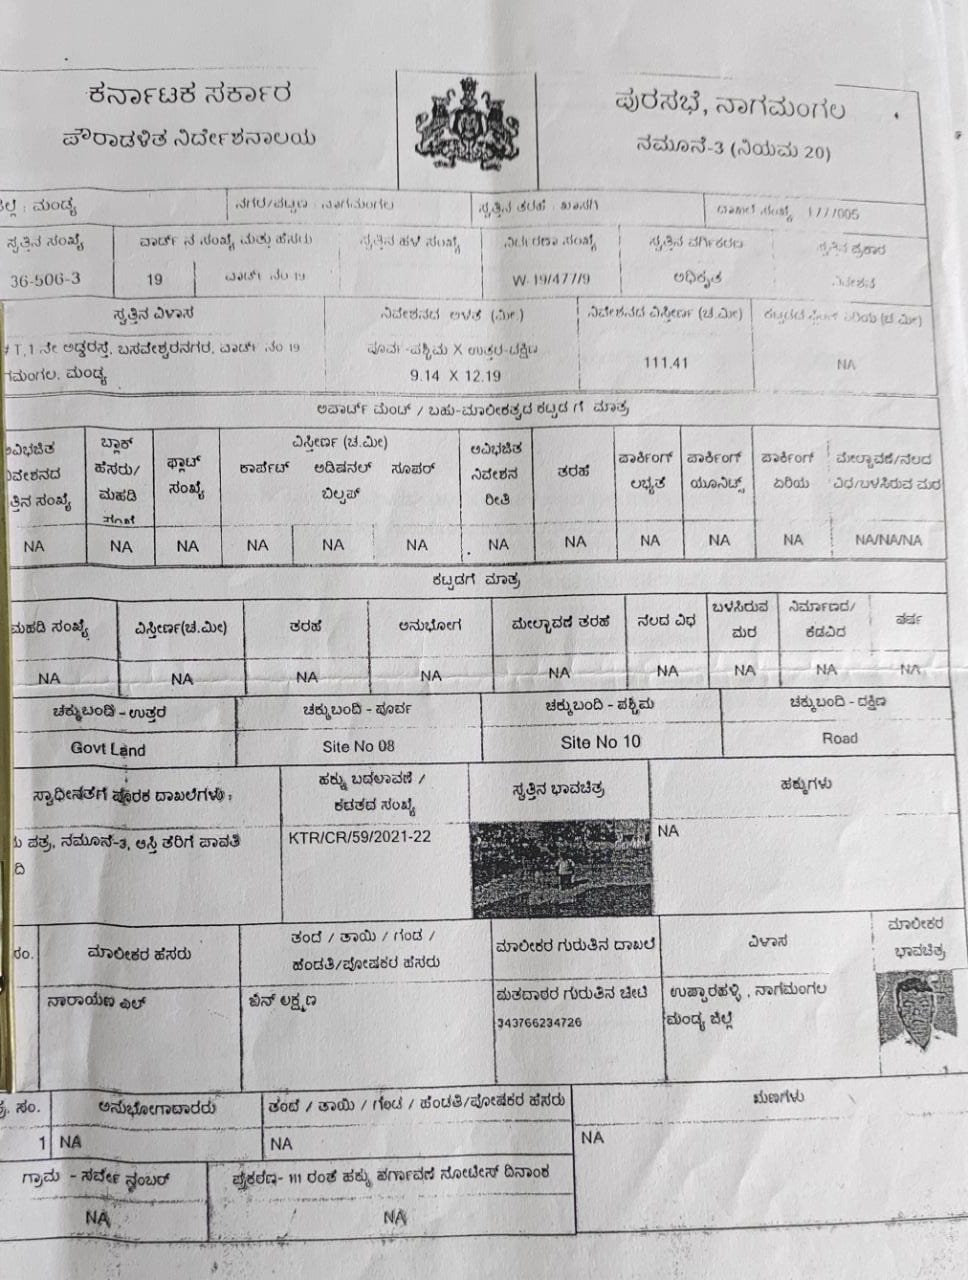 ಕರ್ನಾಟಕ ಸರ್ಕಾರ
ಪೌರಾಡಳಿತ ನಿರ್ದೇಶನಾಲಯ
ಪುರಸಭೆ, ನಾಗಮಂಗಲ
ನಮೂನೆ-3 (ನಿಯಮ 20)
: ಮಂಡ್ಯ
ನಗರ/ಪಟ್ಟಣ : ನಾಗಮಂಗಲ
ಸ್ವತ್ತಿನ ತರಹ : ಖಾಸಗಿ
ದಾಖಲೆ ಸಂಖ್ಯೆ 177/005
ಸ್ವತ್ತಿನ ಸಂಖ್ಯೆ ವಾರ್ಡ್ ನ ಸಂಖ್ಯೆ ಮತ್ತು ಹೆಸರು ಸ್ವತ್ತಿನ ಹಳೆ ಸಂಖ್ಯೆ ಸಂಖ್ಯೆ ಸ್ವತ್ತಿನ ವರ್ಗೀಕರಣ ಸ್ವತ್ತಿನ ಪ್ರಕಾರ
36-506-3 19 ವಾರ್ಡ್ ನಂ 19 W-19/477/9 ಅಧಿಕೃತ ನಿವೇಶನ
ಸ್ವತ್ತಿನ ವಿಳಾಸ ನಿವೇಶನದ ಅಳತೆ (ಮೀ.) ನಿವೇಶನದ ವಿಸ್ತೀರ್ಣ (ಚ.ಮೀ) ಕಟ್ಟಡದ (ಚ.ಮೀ)
T,1 ನೇ ಅಡ್ಡರಸ್ತೆ, ಬಸವೇಶ್ವರನಗರ, ವಾರ್ಡ್ ನಂ 19
ಗಮಂಗಲ, ಮಂಡ್ಯ
ಪೂರ್ವ-ಪಶ್ಚಿಮ X ಉತ್ತರ-ದಕ್ಷಿಣ
9.14 X 12.19
111.41
NA
ಅಪಾರ್ಟ್ ಮೆಂಟ್ / ಬಹು-ಮಾಲೀಕತ್ವದ ಕಟ್ಟಡಗೆ ಮಾತ್ರ
ಅವಿಭಜಿತ
ನಿವೇಶನದ
ತ್ತಿನ ಸಂಖ್ಯೆ
ಬ್ಲಾಕ್
ಹೆಸರು/
ಮಹಡಿ
ಸಂಖ್ಯೆ
ಫ್ಲಾಟ್
ಸಂಖ್ಯೆ
ವಿಸ್ತೀರ್ಣ (ಚ.ಮೀ)
ಕಾರ್ಪೆಟ್ ಅಡಿಷನಲ್ ಸೂಪರ್
ಬಿಲ್ಟಪ್
ಅವಿಭಜಿತ
ನಿವೇಶನ
ರೀತಿ
ತರಹೆ
ಪಾರ್ಕಿಂಗ್
ಲಭ್ಯತೆ
ಪಾರ್ಕಿಂಗ್
ಯೂನಿಟ್ಸ್
ಪಾರ್ಕಿಂಗ್
ಏರಿಯ
ಮೇಲ್ಛಾವಣಿ/ನೆಲದ
ವಿಧ/ಬಳಸಿರುವ ಮರ
NA NA NA NA NA NA NA NA NA NA NA NA/NA/NA
ಕಟ್ಟಡಗೆ ಮಾತ್ರ
ಮಹಡಿ ಸಂಖ್ಯೆ ವಿಸ್ತೀರ್ಣ(ಚ.ಮೀ) ತರಹೆ ಅನುಭೋಗ ಮೇಲ್ಛಾವಣಿ ತರಹೆ ನೆಲದ ವಿಧ
ಬಳಸಿರುವ
ಮರ
ನಿರ್ಮಾಣದ/
ಕೆಡವಿದ
ವರ್ಷ
NA NA NA NA NA NA NA NA NA
ಚಕ್ಕುಬಂದಿ - ಉತ್ತರ ಚಕ್ಕುಬಂದಿ - ಪೂರ್ವ ಚಕ್ಕುಬಂದಿ - ಪಶ್ಚಿಮ ಚಕ್ಕುಬಂದಿ - ದಕ್ಷಿಣ
Govt Land Site No 08 Site No 10 Road
ಸ್ವಾಧೀನತೆಗೆ ಪೂರಕ ದಾಖಲೆಗಳು :
ಹಕ್ಕು ಬದಲಾವಣೆ /
ಕಡತದ ಸಂಖ್ಯೆ
ಸ್ವತ್ತಿನ ಭಾವಚಿತ್ರ
ಹಕ್ಕುಗಳು
ಪತ್ರ, ನಮೂನೆ-3, ಆಸ್ತಿ ತೆರಿಗೆ ಪಾವತಿ
ದಿ
KTR/CR/59/2021-22
NA
ಮಾಲೀಕರ ಹೆಸರು
ತಂದೆ / ತಾಯಿ / ಗಂಡ /
ಹೆಂಡತಿ/ಪೋಷಕರ ಹೆಸರು
ಮಾಲೀಕರ ಗುರುತಿನ ದಾಖಲೆ
ವಿಳಾಸ
ಮಾಲೀಕರ
ಭಾವಚಿತ್ರ
ನಾರಾಯಣ ಎಲ್
ಬಿನ್ ಲಕ್ಷ್ಮಣ
ಮತದಾರರ ಗುರುತಿನ ಚೀಟಿ
343766234726
ಉಪ್ಪಾರಹಳ್ಳಿ , ನಾಗಮಂಗಲ
ಮಂಡ್ಯ ಜಿಲ್ಲೆ
ಸಂ. ಅನುಭೋಗದಾರರು ತಂದೆ / ತಾಯಿ / ಗಂಡ / ಹೆಂಡತಿ/ಪೋಷಕರ ಹೆಸರು ಋಣಗಳು
1 NA NA NA
ಗ್ರಾಮ - ಸರ್ವೇ ನಂಬರ್ ಪ್ರಕರಣ- 111 ರಂತೆ ಹಕ್ಕು ವರ್ಗಾವಣೆ ನೋಟೀಸ್ ದಿನಾಂಕ
NA NA